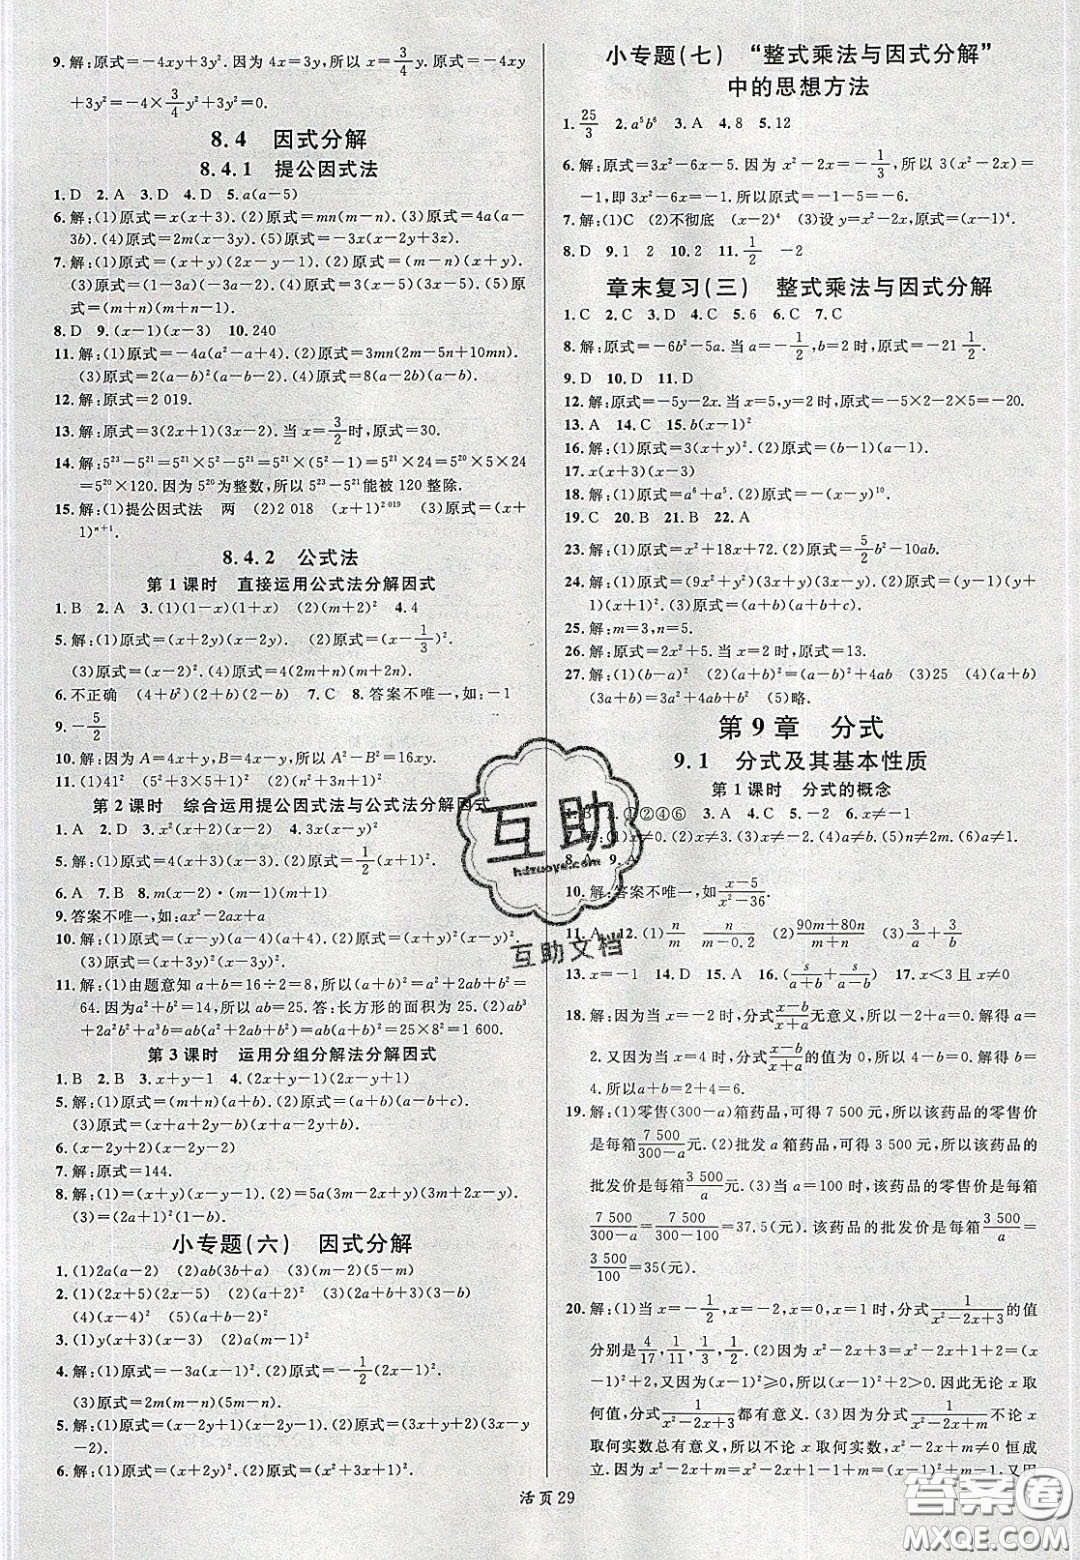 9. 解:原式=-4xy+3y². 因为 4x=3y,所以 x=3/4y,故原式=-4xy
+3y²=-4×3/4y²+3y²=0.
8.4 因式分解
8.4.1 提公因式法
1. D 2. A 3. D 4. D 5. a(a-5)
6. 解:(1)原式=x(x+3). (2)原式=mn(m-n). (3)原式=4a(a-
3b). (4)原式=2m(x-3y). (5)原式=x(x-2y+3z).
7. 解:(1)原式=(x+y)(2y-x). (2)原式=(x-y)(x-y+1).
(3)原式=(1-3a)(1-3a-y). (4)原式=3(x-5)(3x-5). (5)原
式=(m+n)(m+n-1).
8. D 9. (x-1)(x-3) 10. 240
11. 解:(1)原式=-4a(a²-a+4). (2)原式=3mn(2m-10n-1).
(3)原式=2(a-b)²(a-b-2). (4)原式=8(a-2b)(a-b).
12. 解:原式=2 019.
13. 解:原式=3(2x+1)(3x-2). 当 x=3/2时,原式=30.
14. 解:5²³-5²¹=5²¹×5²-5²¹=5²¹×(5²-1)=5²¹×24=5²⁰×5×24
=5²⁰×120. 因为 5²⁰为整数,所以 5²³-5²¹能被 120 整除.
15. 解:(1)提公因式法 两 (2)2 018 (x+1)²⁰¹⁹ (3)原式=(x+
1)ⁿ⁺¹.
8.4.2 公式法
第 1 课时 直接运用公式法分解因式
1. B 2. A 3. (1)(1-x)(1+x) (2)(m+2)² 4. 4
5. 解:(1)原式=(x+2y)(x-2y). (2)原式=(x-1/3)².
(3)原式=(x-2)². (4)原式=4(2m+n)(m+2n).
6. 不正确 (4+b²)(2+b)(2-b) 7. C 8. 答案不唯一,如:-1
9. -5/2
10. 解:因为 A=4x+y,B=4x-y,所以 A²-B²=16xy.
11. (1)41² (2)(5n²+5n+1)²
第 2 课时 综合运用提公因式法与公式法分解因式
1. A 2. D 3. 2(a+b)² 4. 3x(x-1)²
5. 解:(1)原式=4(x+3)(x-3). (2)原式=1/2(x+2)².
6. A 7. B 8. m(x-2)·(m-1)(m+1)
9. 答案不唯一,如:ax²-2ax+a
10.
11. 解:(1)由题意知 a+b=16÷2=8,所以(a+b)²=a²+2ab+b²=
64. 因为a²+b²=14,所以 ab=25. 答:长方形的面积为 25. (2)ab³
+2a²b²+a³b=ab(a²+2ab+b²)=ab(a+b)²=25×8²=1 600.
第 3 课时 运用分组分解法分解因式
1. B 2. B 3. x+y-1 4. (2x+y)(2x-y-1)
5. 解:(1)原式=(m+n)(a+b). (2)原式=(a-b)(a-b+c).
(3)原式=(x+y+a)(x+y-a).
6. (x-2y+2)(x-2y-2)
7. 解:原式=144.
8. 解:(1)=(x+y)(x-y-1). (2)=5a(3m-2x+y)(3m-2x-y).
(3)=(2+a)²(1-b).
小专题(六) 因式分解
1. (1)2a(a-2) (2)ab(3b+a) (3)(m-3)(5-m)
2. (1)(2x+5)(2x-5) (2)(a+1)² (3)2x(x+4)
(4)(5-x)² (5)(a+b-2)²
3. (1)y(x+3)(x-3) (2)a(m-1)²
4. 解:(1)原式=-3a(x-1)². (2)原式=-1/2(2x-1)².
(3)原式=2m(m-n)(5m-n).
5. 解:(1)原式=(x-2y+1)(x-2y-1). (2)原式=(3x+y+2)(3x+y
-2).
6. 解:(1)原式=(x-2)⁴. (2)原式=(x²+3x+1)².
活页 29
小专题(七) “整式乘法与因式分解”
中的思想方法
1. 25/3 2. a⁵b⁶ 3. A 4. 8 5. 12
6. 解:原式=3x²-6x-5. 因为 x²-2x=-1/3,所以 3(x²-2x)=
-1,即 3x²-6x=-1. 所以原式=-6.
7. 解:(1)C (2)不彻底 (x-2)⁴ (3)设 y=x²-2x,原式=(x-1)⁴.
8. D 9. 1 2 10. 2 11. 1/2 -2
章末复习(三) 整式乘法与因式分解
1. C 2. C 3. D 4. C 5. 6 6. C 7. C
8. 解:原式=-6b²-5a. 当 a=-1/2,b=2 时,原式=-21 1/2.
9. D 10. D 11. D
12. 解:原式=-5y-2x. 当 x=5,y=2 时,原式=-5×2-2×5=-20.
13. A 14. C 15. b(x-1)²
16. 解:(1)原式=3(x+y)². (2)原式=(b-1)(a-b).
17. x(x+3)(x-3)
18. 解:(1)原式=a⁶+a⁵. (2)原式=(x-y)¹⁰.
19. C 20. B 21. C 22. A
23. 解:(1)原式=72. (2)原式=9. (3)原式=5/2b²-10b-5.
24. 解:(1)原式=-y(2x-y)². (2)原式=(x-y+
1). (3)原式=(x-1)⁴.
25. 解:m=3,n=5.
26. 解:原式=2x²+5. 当 x=2 时,原式=13.
27. 解:(1)(b-a)² (2)(a+b)²=(a-b)²+4ab (3)25 (4)(a+b)·
(3a+b)=3a²+4ab+b² (5)略.
第 9 章 分式
9.1 分式及其基本性质
第 1 课时 分式的概念
1. B ①②④⑥ 3. A 4. C 5. -2 6. x≠-1
(1)x≠0. (2)x≠3. (3)x≠-2. (4)a≠b. (5)n≠2m. (6)a≠1.
8. A 9. A
10. 解:答案不唯一,如(x-5)/(x²-36).
11. A 12. (1)n/m n/(m-0.2) (2)(90m+80n)/(m+n) (3)3/a+3/b
13. x=-1 14. D 15. A 16. (s/(a+b)-s/a) 17. x<3 且 x≠0
18. 解:因为当 x=-2 时,分式(x-b)/(x+a)无意义,所以-2+a=0. 所以 a=
2. 又因为当 x=4 时,分式(x-b)/(x+a)的值为 0,所以 4-b=0,所以 b=
4. 所以 a+b=2+4=6.
19. 解:(1)零售(300-a)箱药品,可得 7 500 元,所以该药品的零售价
是每箱7 500/(300-a)元. (2)批发 a 箱药品,可得 3 500 元,所以该药品的
批发价是每箱3 500/a元. (3)当 a=100 时,该药品的零售价是每箱
7 500/(300-a)=7 500/(300-100)=37.5(元). 该药品的批发价是每箱3 500/a=
3 500/100=35(元).
20. 解:(1)当 x=-1/2,x=-2,x=0,x=1 时,分式1/(x²-2x+3)的值
分别是4/17,1/11,1/3,1/2. (2)因为 x²-2x+3=x²-2x+1+2=(x-
1)²+2,(x-1)²≥0,所以(x-1)²+2>0. 因此无论 x 取
何值,分式1/(x²-2x+3)都有意义. (3)因为分式1/(x²-2x+m)不论 x
取何实数总有意义,所以不论 x 取何实数,x²-2x+m≠0 恒成
立. 又因为 x²-2x+m=x²-2x+1+m-1=(x-1)²
互助
hdzuoye.com
互助文档
答案圈
MXQE.COM